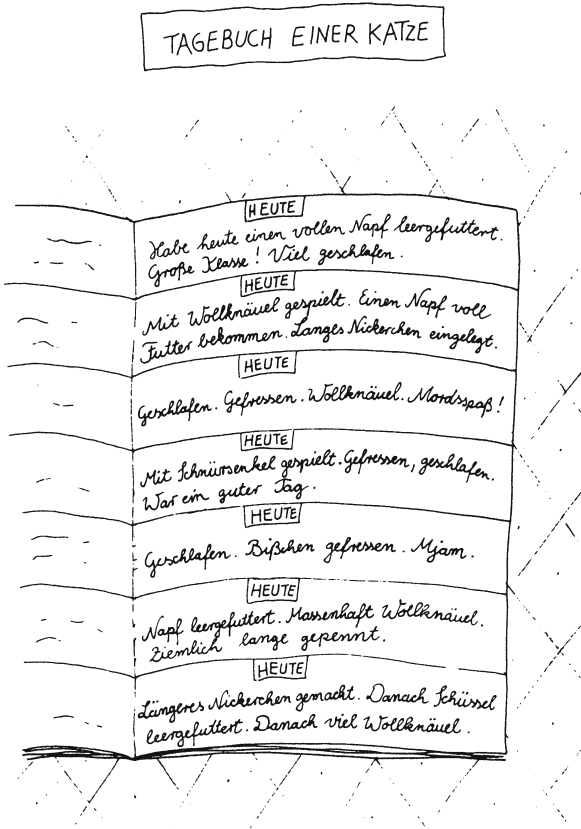 TAGEBUCH EINER KATZE
HEUTE
Habe heute einen vollen Napf leergefuttert.
Große Klasse! Viel geschlafen.
HEUTE
Mit Wollknäuel gespielt. Einen Napf voll
Futter bekommen. Langes Nickerchen eingelegt.
HEUTE
Geschlafen. Gefressen. Wollknäuel. Mordsspaß!
HEUTE
Mit Schnürsenkel gespielt. Gefressen, geschlafen.
War ein guter Tag.
HEUTE
Geschlafen. Bißchen gefressen. Mjam.
HEUTE
Napf leergefuttert. Massenhaft Wollknäuel.
Ziemlich lange gepennt.
HEUTE
Längeres Nickerchen gemacht. Danach Schüssel
leergefuttert. Danach viel Wollknäuel.